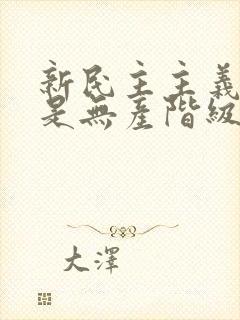 新民主主義
是無產階級
大澤